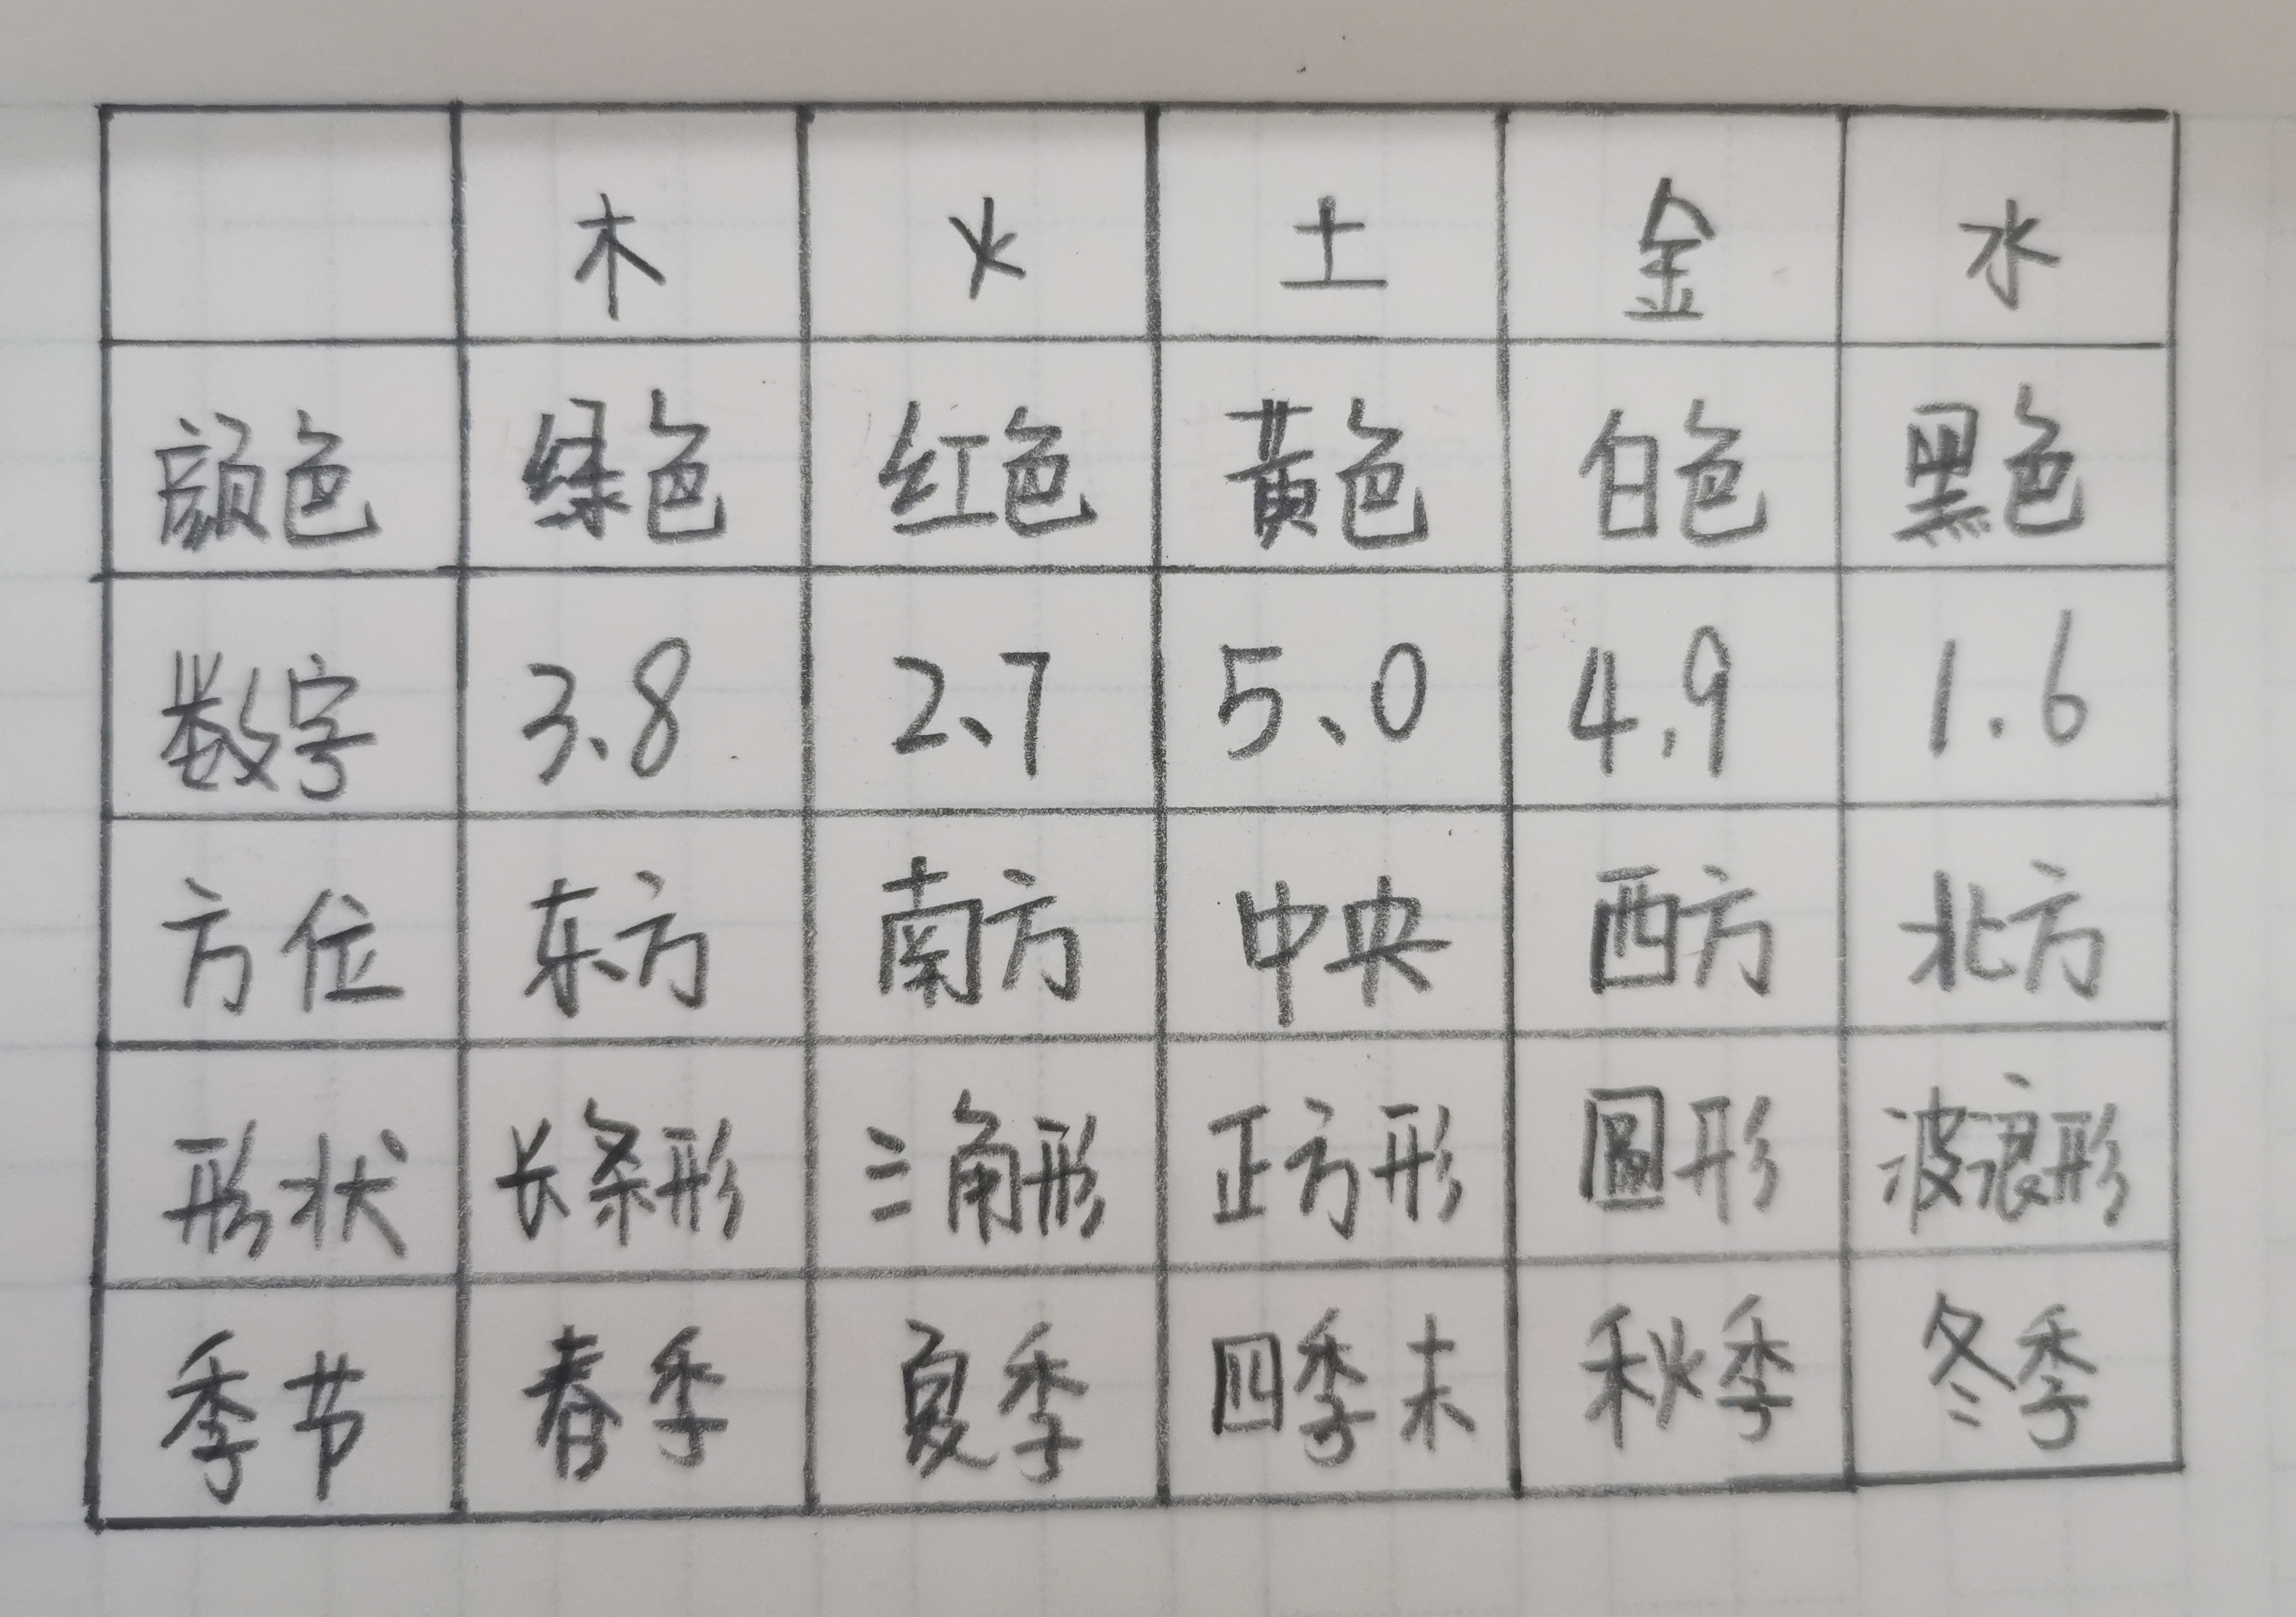 木 火 土 金 水
颜色 绿色 红色 黄色 白色 黑色
数字 3、8 2、7 5、0 4,9 1.6
方位 东方 南方 中央 西方 北方
形状 长条形 三角形 正方形 圆形 波浪形
季节 春季 夏季 四季末 秋季 冬季